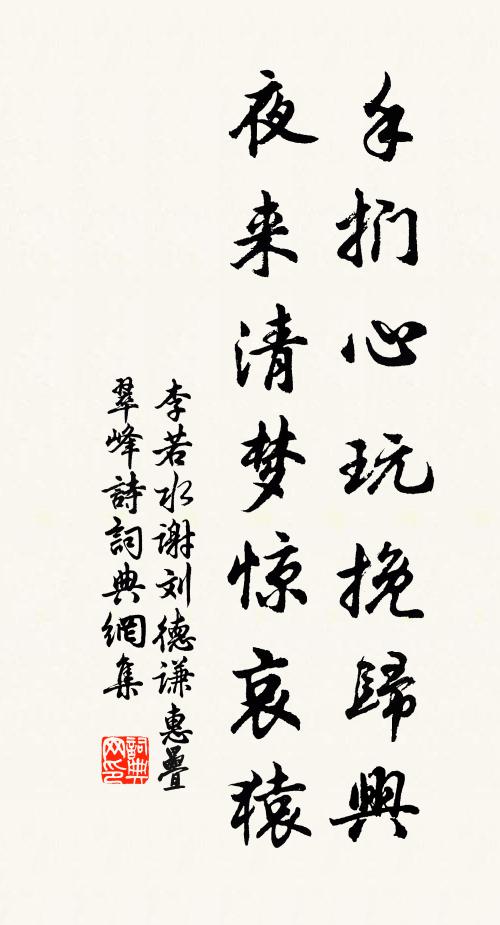 手捫心玩挽歸興
夜来清梦惊哀猿
李若水谢刘德谦惠疊
翠峰詩詞典網集
詞典
网印